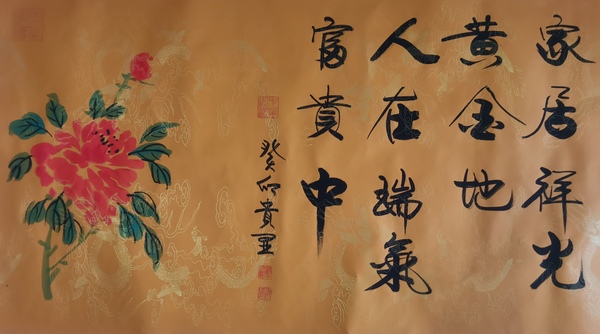 家居祥光
黄金地
人在瑞氣
富貴中
癸卯貴里